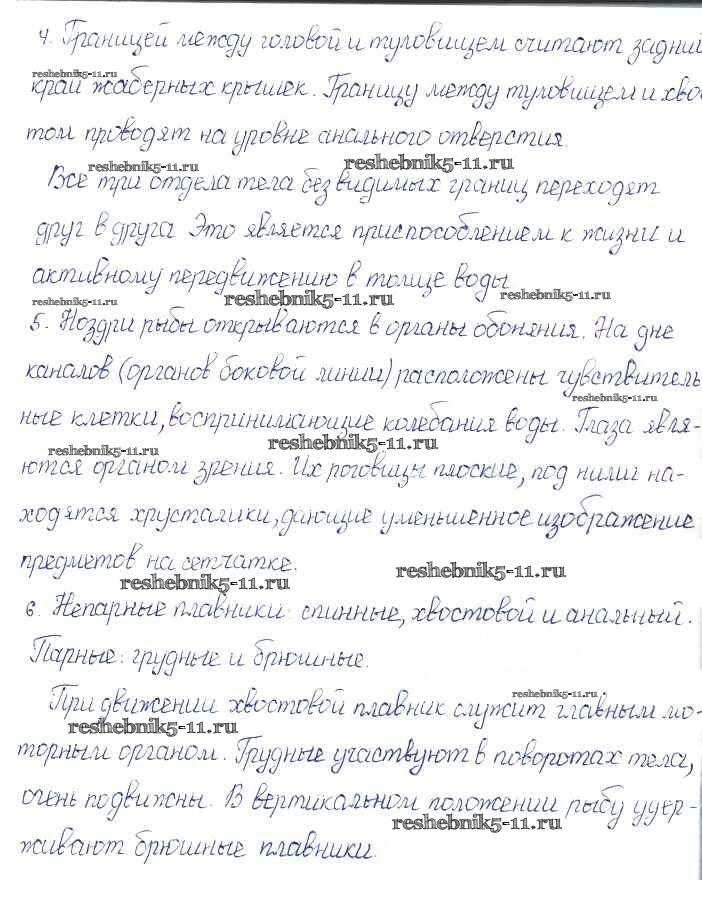 4. Границей между головой и туловищем считают задний
reshebnik5-11.ru
край жаберных крышек. Границу между туловищем и хвос
том проводят на уровне анального отверстия.
reshebnik5-11.ru
reshebnik5-11.ru
Все три отдела тела без видимых границ переходят
друг в друга. Это является приспособлением к жизни и
активному передвижению в толще воды
reshebnik5-11.ru
reshebnik5-11.ru
reshebnik5-11.ru
5. Ноздри рыбы открываются в органы обоняния. На дне
каналов (органов боковой линии) расположены чувствитель
reshebnik5-11.ru
ные клетки, воспринимающие колебания воды. Глаза явля-
reshebnik5-11.ru
reshebnik5-11.ru
ются органом зрения. Их роговицы плоские, под ними на-
ходятся хрусталики, дающие уменьшенное изображение
предметов на сетчатке.
reshebnik5-11.ru
reshebnik5-11.ru
6. Непарные плавники: спинные, хвостовой и анальный.
Парные: грудные и брюшные.
reshebnik5-11.ru
При движении хвостовой плавник служит главным мо-
reshebnik5-11.ru
торным органом. Грудные участвуют в поворотах тела,
очень подвижны. В вертикальном положении рыбу удер-
reshebnik5-11.ru
живают брюшные плавники.